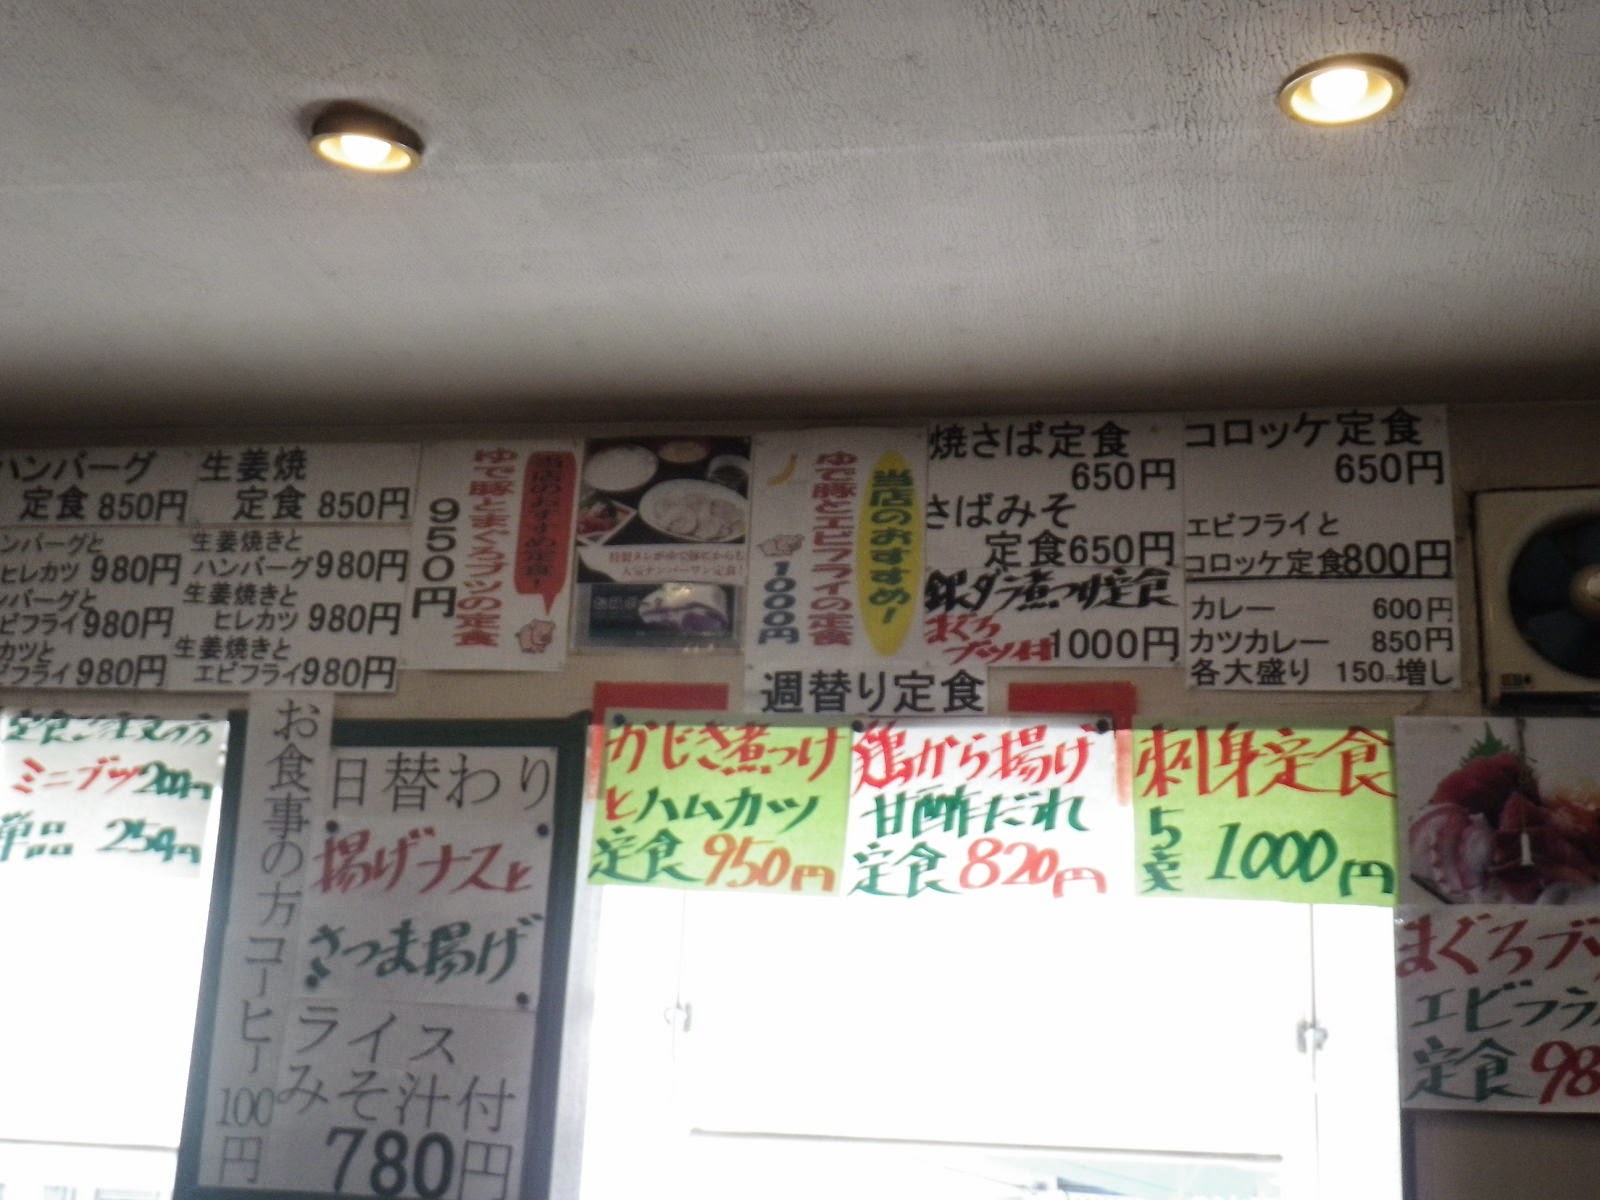 ハンバーグ
定食 850円
ンバーグと
ヒレカツ 980円
ンバーグと
ビフライ 980円
カツと
ビフライ 980円
生姜焼
定食 850円
生姜焼きと
ハンバーグ 980円
生姜焼きと
ヒレカツ 980円
生姜焼きと
エビフライ 980円
当店のおすすめ定食!
ゆで豚とまぐろブツの定食
950円
特製タレがゆで豚にからも
人気ナンバーワン定食!
当店のおすすめ!
ゆで豚とエビフライの定食
1000円
焼さば定食
650円
さばみそ
定食650円
銀ダラ煮つけ定食
まぐろ
ブツ付 1000円
コロッケ定食
650円
エビフライと
コロッケ定食800円
カレー 600円
カツカレー 850円
各大盛り 150円増し
定食ご注文の方
ミニブツ200円
単品 250円
お食事の方コーヒー100円
日替わり
揚げナスと
さつま揚げ
ライス
みそ汁付
780円
週替り定食
かじき煮つけ
とハムカツ
定食 950円
鶏から揚げ
甘酢だれ
定食 820円
刺身定食
1000円
まぐろブ
エビフラ
定食 98